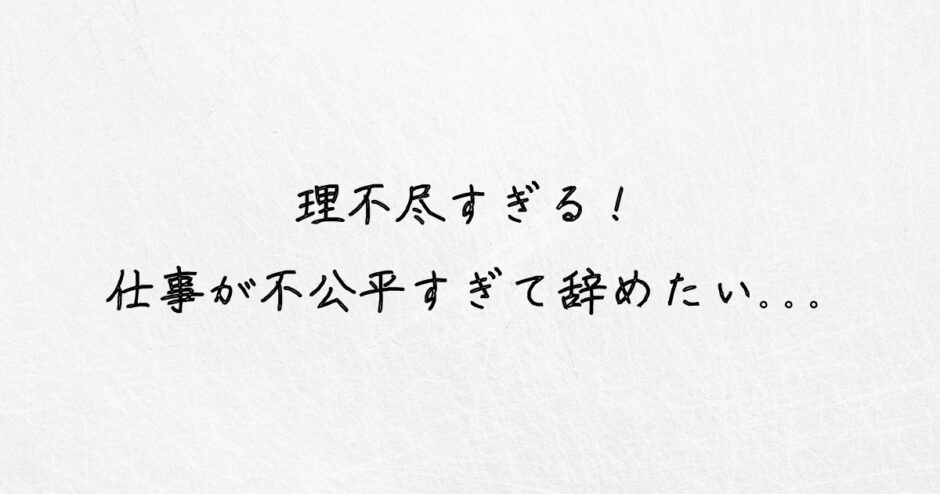 理不尽すぎる！
仕事が不公平すぎて辞めたい。。。